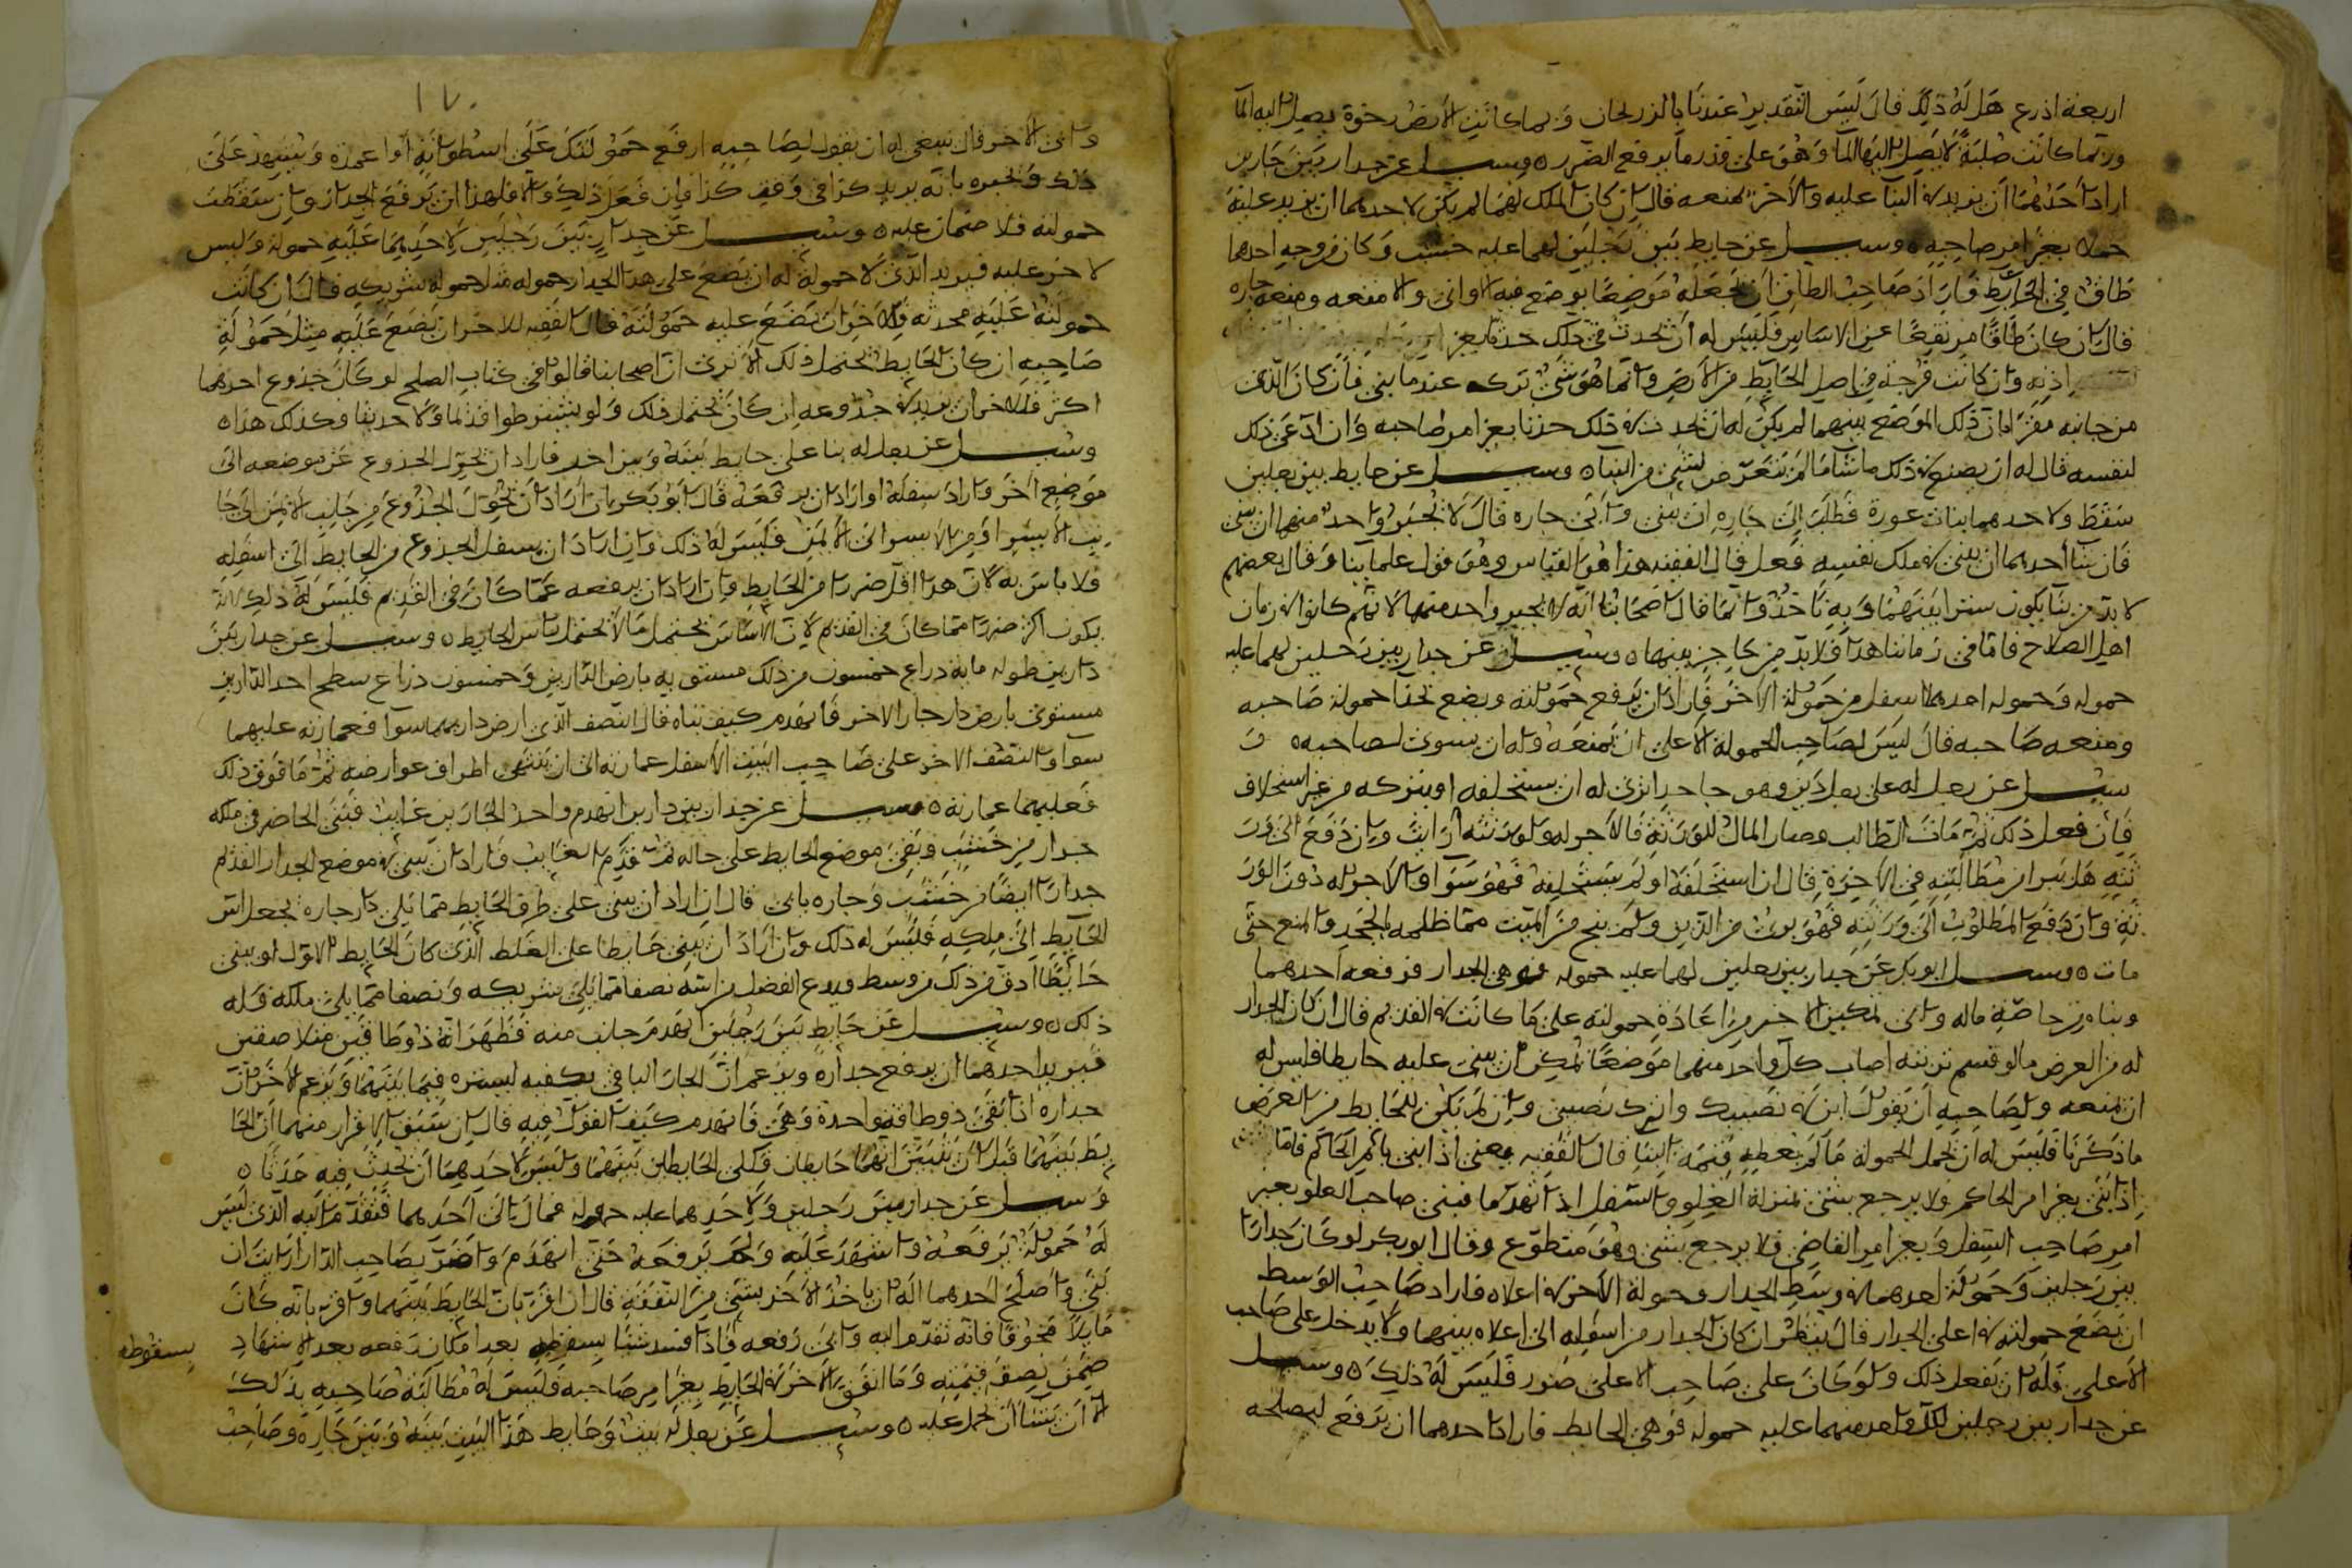 اربعة اذرع هل له ذلك قال ليس التقدير عندنا بالذرعان وربما كانت الارض رخوة يصل اليه الما
وربما كانت صلبة لا يصل اليها الما وهو على قدر ما يرفع الضرر ه وسيل عن جدار بين جارين
اراد احدهما ان يزيد في البنا عليه والاخر يمنعه قال ان كان الملك لهما لم يكن لاحدهما ان يزيد عليه
حملا بغير امر صاحبه ه وسيل عن حايط بين رجلين لهما عليه خشب وكان في وجه احدهما
طاق في الحايط فاراد صاحب الطاق ان يجعله موضعا يوضع فيه الاواني والامتعة ومنعه جاره
قال ان كان طاقا مرتفعا عن الاساس فليس له ان يحدث في ذلك حدثا بغير
اذنه وان كانت فرجة في اصل الحايط من الارض وانما هو شي تركه عندما بنى فان كان الذي
من جانبه مقرا بان ذلك الموضع بينهما لم يكن له ان يحدث في ذلك حدثا بغير امر صاحبه وان ادعى ذلك
لنفسه قال له ان يصنع في ذلك ما شا ما لم يتعرض لشي من البنا ه وسيل عن حايط بين رجلين
سقط ولاحدهما بنات عورة فطلب الى جاره ان يبني وابى جاره قال لا يجبر واحد منهما ان يبني
فان شا احدهما ان يبني في ملك نفسه فعل قال الفقيه هذا هو القياس وهو قول علماينا وقال بعضهم
لا بد من بنا يكون سترا بينهما وبه ناخذ وانما قال اصحابنا انه لا يجبر واحد منهما لانهم كانوا في زمان
اهل الصلاح فاما في زماننا هذا فلا بد من حاجز بينهما ه وسيل عن جدار بين رجلين لهما عليه
حمولة وحمولة احدهما اسفل من حمولة الاخر فاراد ان يرفع حمولته ويضع بحذا حمولة صاحبه
ومنعه صاحبه قال ليس لصاحب الحمولة الاعلى ان يمنعه وله ان يسوي لصاحبه ه و
سيل عن رجل له على رجل دين وهو جاحد اترى له ان يستحلفه او يتركه من غير استحلاف
فان فعل ذلك ثم مات الطالب وصار المال للورثة فالاجر له ولورثته ارايت وان دفع الى ور
ثته هل يبرا من مطالبته في الاخرة قال ان استحلفه او لم يستحلفه فهو سوا والاجر له دون الور
ثة وان دفع المطلوب الى ورثته فهو برئ من الدين ولم ينج من الميت مما ظلمه بالجحد والمنع حتى
مات ه وسيل ابو بكر عن جدار بين رجلين لهما عليه حمولة فوهى الجدار فرفعه احدهما
وبناه من خاصة ماله وابى تمكين الاخر من اعادة حمولته على ما كانت في القديم قال ان كان الجدار
له من العرض ما لو قسم تربته اصاب كل واحد منهما موضعا يمكن ان يبني عليه حايطا فليس له
ان يمنعه ولصاحبه ان يقول ابن في نصيبك واترك نصيبي وان لم يكن للحايط من العرض
ما ذكرنا فليس له ان يحمل الحمولة ما لم يعطه قيمة البنا قال الفقيه يعني اذا بنى بامر الحاكم فاما
اذا بنى بغير امر الحاكم ولا يرجع بشي بمنزلة العلو والسفل اذا انهدما فبنى صاحب العلو بغير
امر صاحب السفل وبغير امر القاضي فلا يرجع بشي وهو متطوع وقال ابو بكر لو كان جدارا
بين رجلين وحمولة احدهما في وسط الجدار وحمولة الاخر في اعلاه فاراد صاحب الوسط
ان يضع حمولته في اعلى الجدار قال ينظر ان كان الجدار من اسفله الى اعلاه بينهما ولا يدخل على صاحب
الاعلى فله ان يفعل ذلك ولو كان على صاحب الاعلى ضرر فليس له ذلك ه وسيل
عن جدار بين رجلين لكل واحد منهما عليه حمولة فوهى الحايط فاراد احدهما ان يرفع ليصلحه
١٧٠
وابى الاخر قال ينبغي له ان يقول لصاحبه ارفع حمولتك على اسطوانة او اعمدة ويشهد على
ذلك ويخبره بانه يريد كذا في وقت كذا فان فعل ذلك والا فلهذا ان يرفع الجدار وان سقطت
حمولته فلا ضمان عليه ه وسيل عن جدار بين رجلين لاحدهما عليه حمولة وليس
للاخر عليه فيريد الذي لا حمولة له ان يضع على هذا الجدار حمولة مثل حمولة شريكه قال ان كانت
حمولته عليه محدثة فللاخر ان يضع عليه حمولته قال الفقيه للاخر ان يضع عليه مثل حمولة
صاحبه ان كان الحايط يحتمل ذلك الا ترى ان اصحابنا قالوا في كتاب الصلح لو كان جذوع احدهما
اكثر فللاخر ان يزيد في جذوعه ان كان يحتمل ذلك ولو يشترطوا قديما ولا حديثا وكذلك هذا ه
وسيل عن رجل له بنا على حايط بينه وبين اخر فاراد ان يحول الجذوع عن موضعه الى
موضع اخر واراد سفله او اراد ان يرفعه قال ابو بكر ان اراد ان يحول الجذوع من جانب الايمن الى جا
نب الايسر او من الايسر الى الايمن فليس له ذلك وان اراد ان يسفل الجذوع من الحايط الى اسفله
فلا باس به لان هذا اقل ضررا من الحايط وان اراد ان يرفعه عما كان في القديم فليس له ذلك لانه
يكون اكثر ضررا مما كان في القديم لان الاساس يحتمل ما لا يحتمل راس الحايط ه وسيل عن جدار بين
دارين طوله ماية ذراع خمسون من ذلك مستوية بارض الدارين وخمسون ذراع سطح احد الدارين
مستوي بارض دار جار الاخر فانهدم كيف بناه قال النصف الذي ارض داريهما سوا فعمارته عليهما
سوا والنصف الاخر على صاحب البيت الاسفل عمارته الى ان ينتهي اطراف عوارضه ثم ما فوق ذلك
فعليهما عمارته ه وسيل عن جدار بين دارين انهدم واحد الجارين غايب فبنى الحاضر في ملكه
جدار من خشب وبقي موضع الحايط على حاله ثم قدم الغايب فاراد ان يبني في موضع الجدار القديم
جدارا ايضا من خشب وجاره يابى قال ان اراد ان يبني على طرف الحايط مما يلي دار جاره يجعل اس
الحايط الى ملكه فليس له ذلك وان اراد ان يبني حايطا على الغلظ الذي كان الحايط الاول او يبني
حايطا ادق من ذلك من وسط ويدع الفضل من اسه نصفا مما يلي شريكه ونصفا مما يلي ملكه فله
ذلك ه وسيل عن حايط بين رجلين انهدم جانب منه فظهر انه ذو طاقين متلاصقين
فيريد احدهما ان يرفع جداره ويزعم ان الجار الباقي يكفيه ليستره فيما بينهما ويزعم الاخر ان
جداره اذا بقي ذو طاقة واحدة وهي فانهدم كيف القول فيه قال ان سبق الاقرار منهما ان الحا
يط بينهما قبل ان يتبين انهما حايطان فكلى الحايطين بينهما وليس لاحدهما ان يحدث فيه حدثا ه
وسيل عن جدار بين رجلين ولاحدهما عليه حمولة فمال الى احدهما فتقدم اليه الذي ليس
له حمولة برفعه واشهد عليه ولم يرفعه حتى انهدم واضر بصاحب الدار ارايت ان
بنى واصلح احدهما اله ان ياخذ الاخر بشي من النفقة قال ان اقر بان الحايط بينهما واقر بانه كان
مايلا مخوفا فانه تقدم اليه وابى رفعه فاذا فسد شيا بسقوطه بعد امكان رفعه بعد الاشهاد
بسقوطه
ضمن نصف قيمته وما انفق الاخر في الحايط بغير امر صاحبه فليس له مطالبة صاحبه بذلك
الا ان يشا ان يحمل عليه ه وسيل عن رجل له بيت وحايط هذا البيت بينه وبين جاره وصاحب